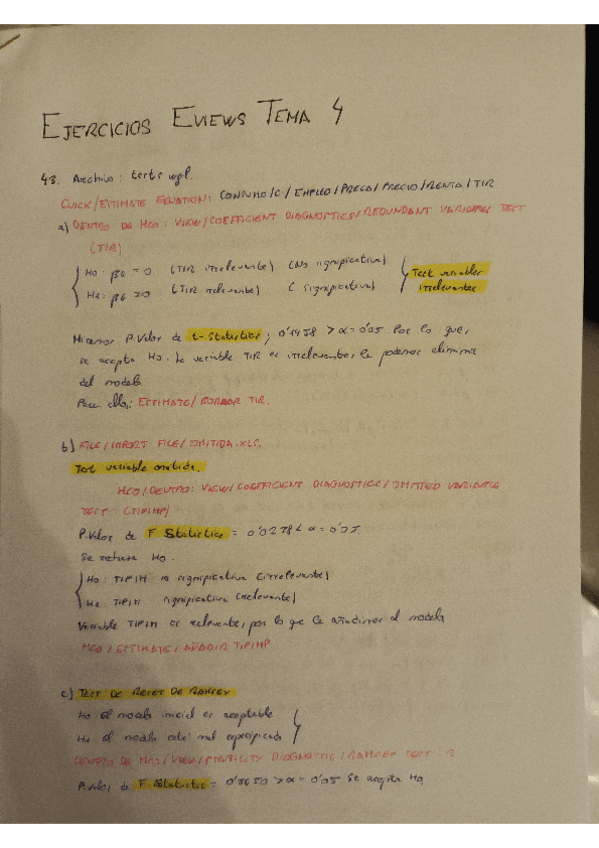 EJERCICIOS EVIEWS TEMA 4
43. Archivo: tests wfl.
CLICK/ESTIMATE EQUATION: CONSUMO/C/EMPLEO/PRECA/PRECIO/RENTA/TIR
a) DENTRO DE MCO: VIEW/COEFFICIENT DIAGNOSTICS/REDUNDANT VARIABLES TEST
(TIR)
Ho: β6 = 0 (TIR irrelevante) (No significativa)
Ha: β6 ≠ 0 (TIR relevante) (significativa)
Test variables
irrelevantes
Miramos P.Valor de t-Statistic; 0'1458 > α = 0'05 Por lo que,
se acepta Ho. La variable TIR es irrelevante, la podemos eliminar
del modelo
Para ello: ESTIMATE/BORRAR TIR.
b) FILE/IMPORT FILE/OMITIDA.XLS.
Test variable omitida.
MCO/DENTRO: VIEW/COEFFICIENT DIAGNOSTICS/OMITTED VARIABLE
TEST: (TIPIHP)
P.Valor de F Statistic = 0'0278 < α = 0'05
Se rechaza Ho.
Ho: TIPIH no significativa (irrelevante)
Ha: TIPIH significativa (relevante)
Variable TIPIH es relevante, por lo que la añadimos al modelo
MCO/ESTIMATE/AÑADIR TIPIHP
c) TEST DE RESET DE RAMSEY
Ho el modelo inicial es aceptable
Ha el modelo está mal especificado
DENTRO DE MCO/VIEW/STABILITY DIAGNOSTIC/RAMSEY TEST: 2
P.Valor de F Statistic = 0'5650 > α = 0'05 Se acepta Ho